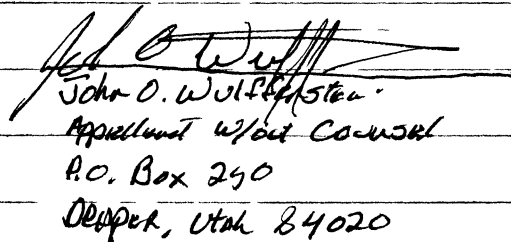 John O. Wulffenstein
Appellant w/out Counsel
P.O. Box 290
DRAPER, Utah 84020